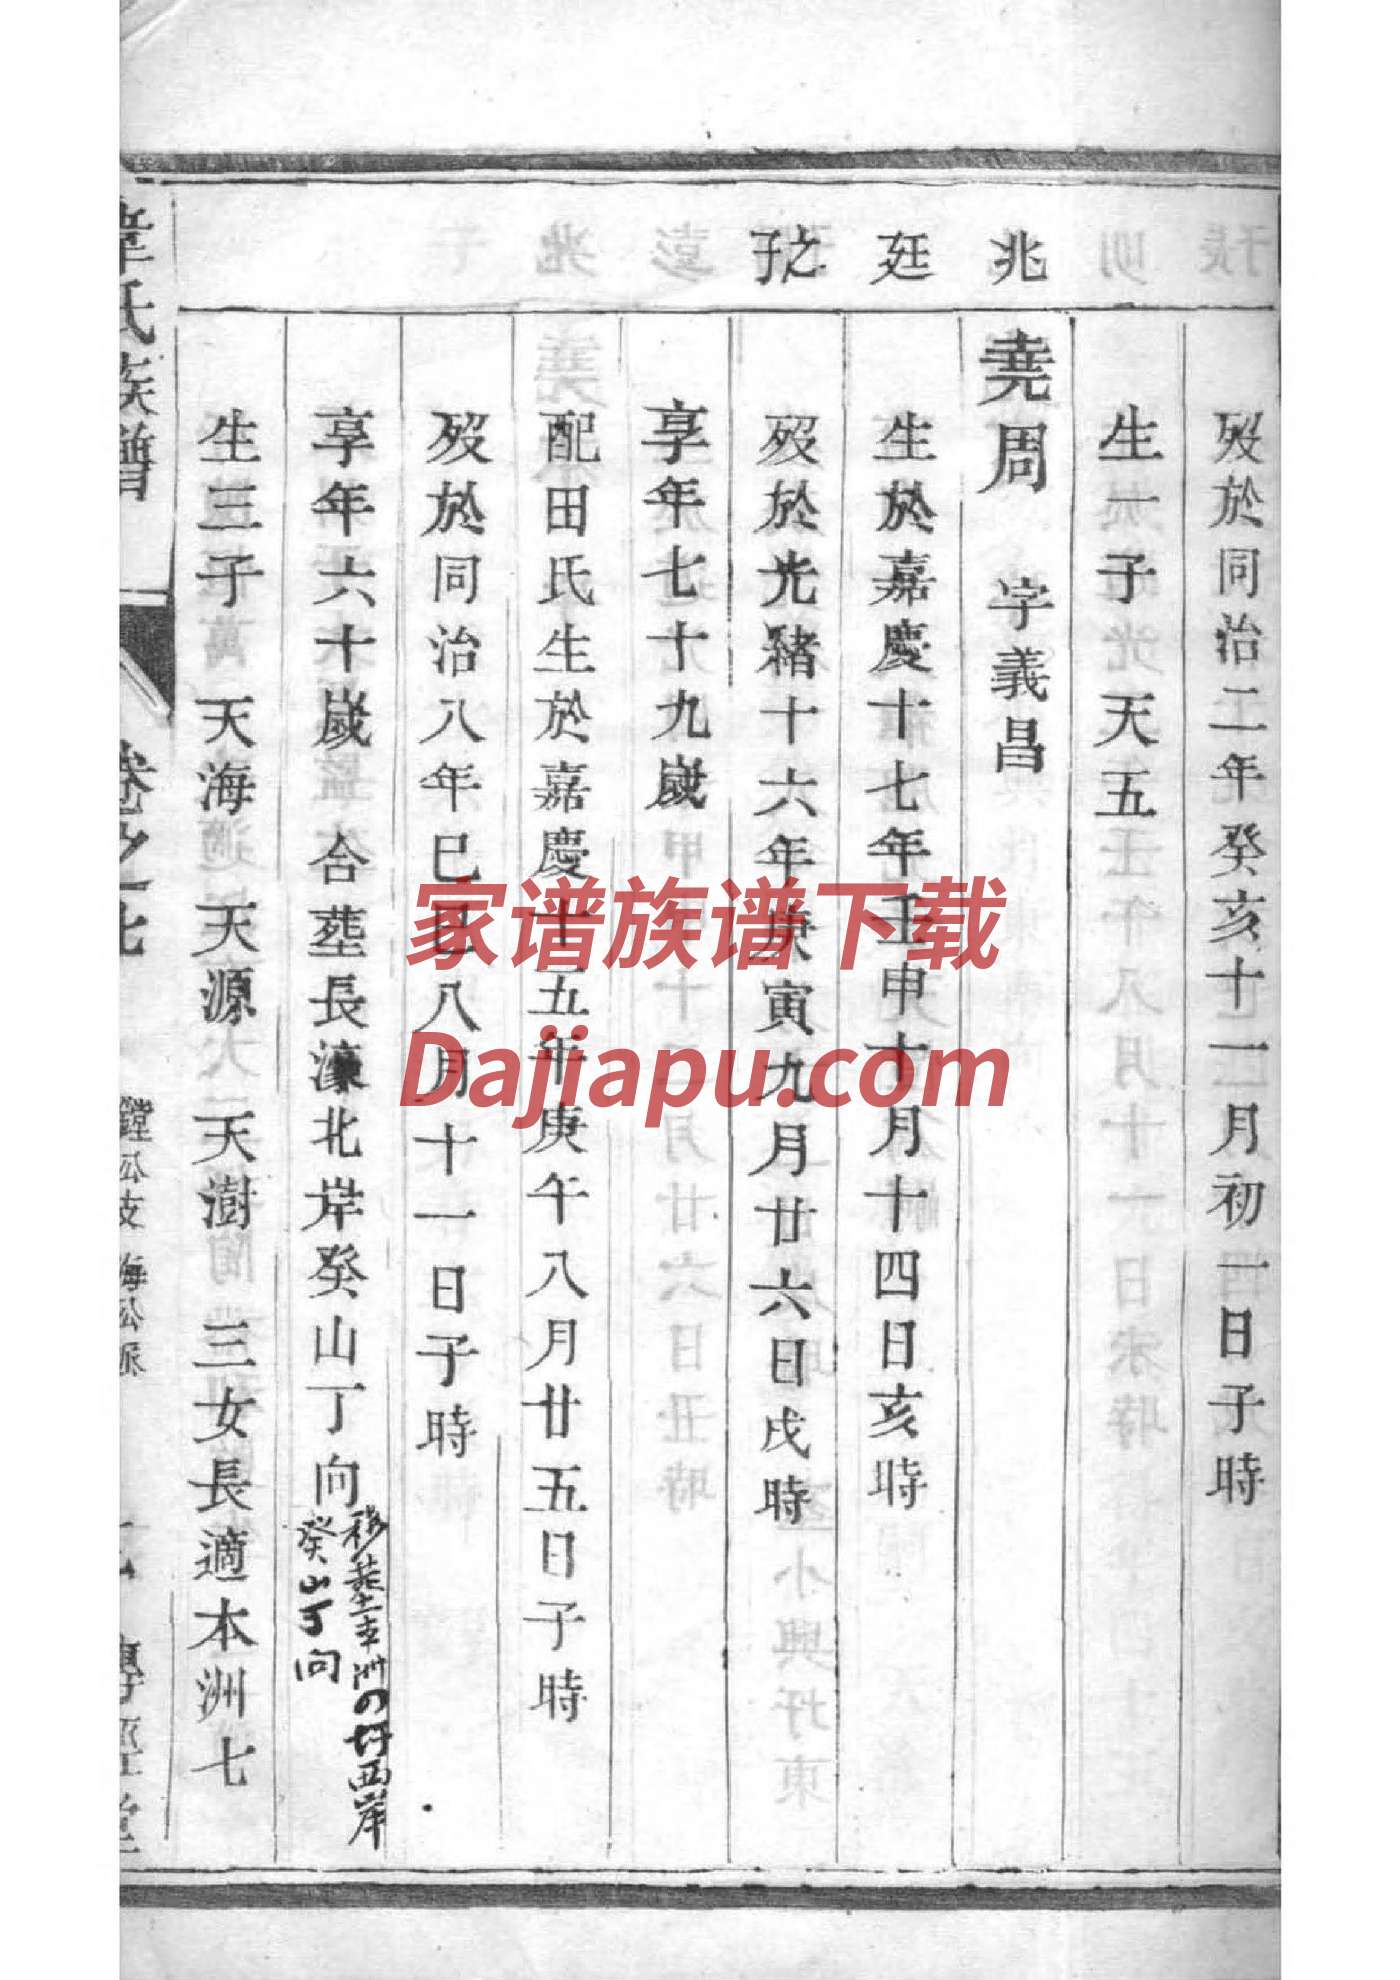 兆
廷
之子
歿於同治二年癸亥十二月初一日子時
生一子天五
堯周 字義昌
生於嘉慶十七年壬申十月十四日亥時
歿於光緒十六年庚寅九月廿六日戌時
享年七十九歲
配田氏生於嘉慶十五年庚午八月廿五日子時
歿於同治八年己巳八月十一日子時
享年六十歲 合塟長濠北岸癸山丁向
移塟圭洲の圩西岸
癸山丁向
生三子 天海 天源 天澍 三女長適本洲七
韋氏族譜
卷之七
鏜公支 海公派
傳經堂
家谱族谱下载
Dajiapu.com